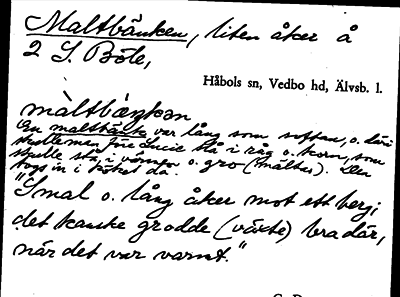 Maltbänken, liten åker å
2 S. Böle,
Håbols sn, Vedbo hd, Älvsb. l.
màltbæŋkən
En maltbänk var lång som soffan, o. däri
skulle man stå i råg o. korn, som
skulle stå i värmen o. gro (mältas). Den
togs in i köket då.
"Smal o. lång åker mot ett berg;
det kanske grodde (växte) bra där,
när det var varmt."